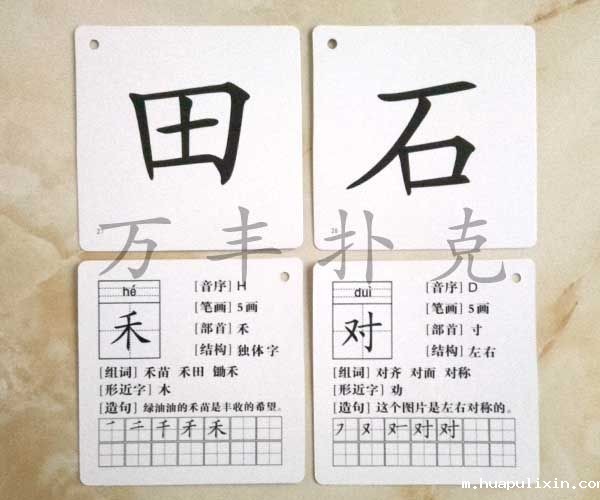 田
27
石
28
万丰扑克
hé
禾
[音序] H
[笔画] 5画
[部首] 禾
[结构] 独体字
[组词] 禾苗 禾田 锄禾
[形近字] 木
[造句] 绿油油的禾苗是丰收的希望。
一 二 千 禾 禾
duì
对
[音序] D
[笔画] 5画
[部首] 寸
[结构] 左右
[组词] 对齐 对面 对称
[形近字] 劝
[造句] 这个图片是左右对称的。
フ 又 对 对
m.huapulixin.com